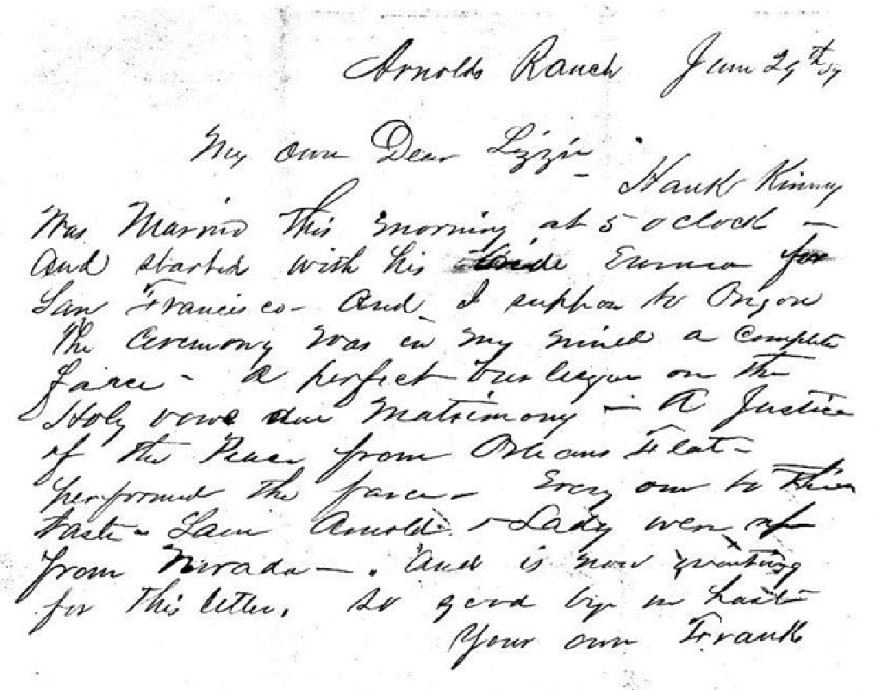 Arnolds Ranch June 29th 57
My own Dear Lizzie
Hank Kinney
Was Married this morning at 5 oclock –
and started with his Bride Emma for
San Francisco – and I suppose to Oregon
The Ceremony was in my mind a complete
farce – a perfect burlesque on the
Holy vows due Matrimony – A Justice
of the Peace from Orleans Flat –
performed the farce – Every one to their
taste – Sam Arnold & Lady were up
from Nevada – . And is now waiting
for this letter. So good bye in haste
Your own Frank